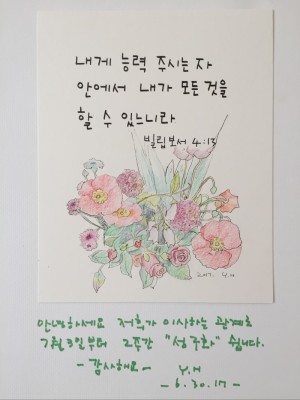 내게 능력 주시는 자
안에서 내가 모든 것을
할 수 있느니라
빌립보서 4:13
2017. Y.N
안녕하세요 저희가 이사하는 관계로
7월 3일부터 2주간 "성구화" 쉽니다.
- 감사해요 - Y.N
- 6.30.17 -